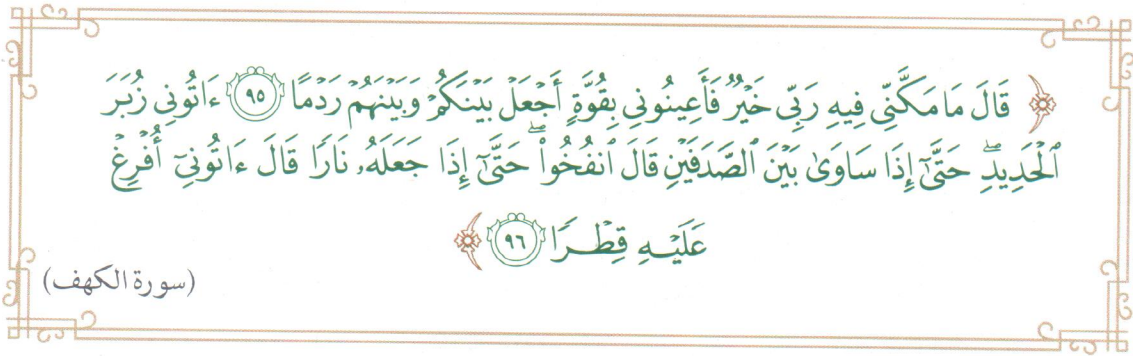 ﴿ قَالَ مَا مَكَّنِّي فِيهِ رَبِّي خَيْرٌ فَأَعِينُونِي بِقُوَّةٍ أَجْعَلْ بَيْنَكُمْ وَبَيْنَهُمْ رَدْمًا ٩٥ ءَاتُونِي زُبَرَ
ٱلْحَدِيدِۖ حَتَّىٰٓ إِذَا سَاوَىٰ بَيْنَ ٱلصَّدَفَيْنِ قَالَ ٱنفُخُواْۖ حَتَّىٰٓ إِذَا جَعَلَهُۥ نَارًا قَالَ ءَاتُونِيٓ أُفْرِغْ
عَلَيْهِ قِطْرًا ٩٦ ﴾
(سورة الكهف)